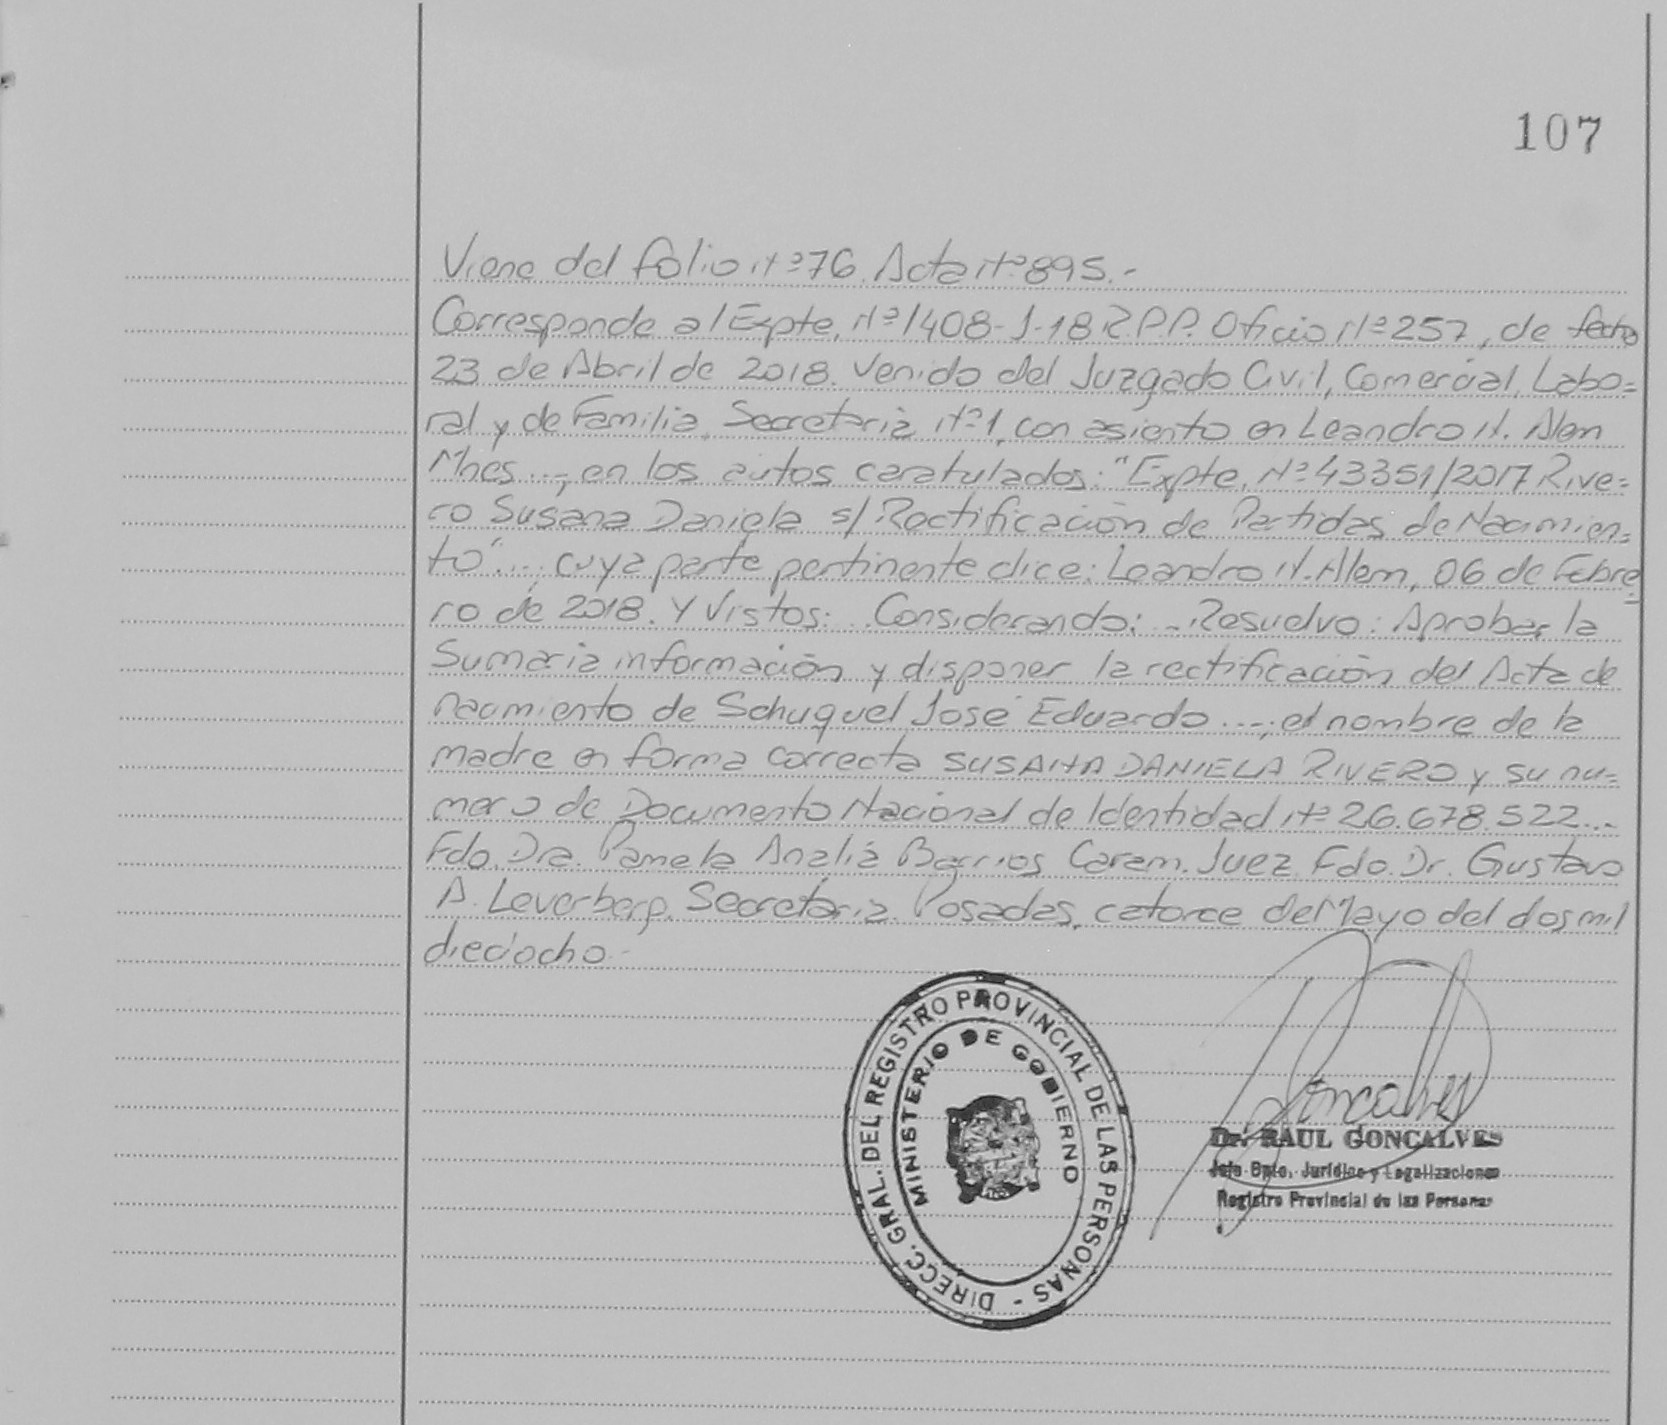 107
Viene del folio Nº 76 Acta Nº 895.-
Corresponde al Expte. Nº 1408-J-18 R.P.P. Oficio Nº 257, de fecha
23 de Abril de 2018. Venido del Juzgado Civil, Comercial, Labo=
ral y de Familia, Secretaria Nº 1, con asiento en Leandro N. Alem
Mnes...., en los autos caratulados: "Expte. Nº 43351/2017 Rive=
ro Susana Daniela s/ Rectificación de Partidas de Nacimien=
to"...; cuya parte pertinente dice: Leandro N. Alem, 06 de Febre=
ro de 2018. Y Vistos:.. Considerando: .. Resuelvo: Aprobar la
Sumaria información y disponer la rectificación del Acta de
nacimiento de Schuquel José Eduardo ....; el nombre de la
madre en forma correcta SUSANA DANIELA RIVERO y su nu=
mero de Documento Nacional de Identidad Nº 26.678.522...
Fdo. Dra. Pamela Analiá Barrios Caram. Juez Fdo. Dr. Gustavo
A. Leverberg. Secretaria. Posadas, catorce de Mayo del dos mil
dieciocho.-
DIRECC. GRAL. DEL REGISTRO PROVINCIAL DE LAS PERSONAS -
MINISTERIO DE GOBIERNO
Goncalves
Dr. RAUL GONCALVES
Jefe Dpto. Jurídico y Legalizaciones
Registro Provincial de las Personas